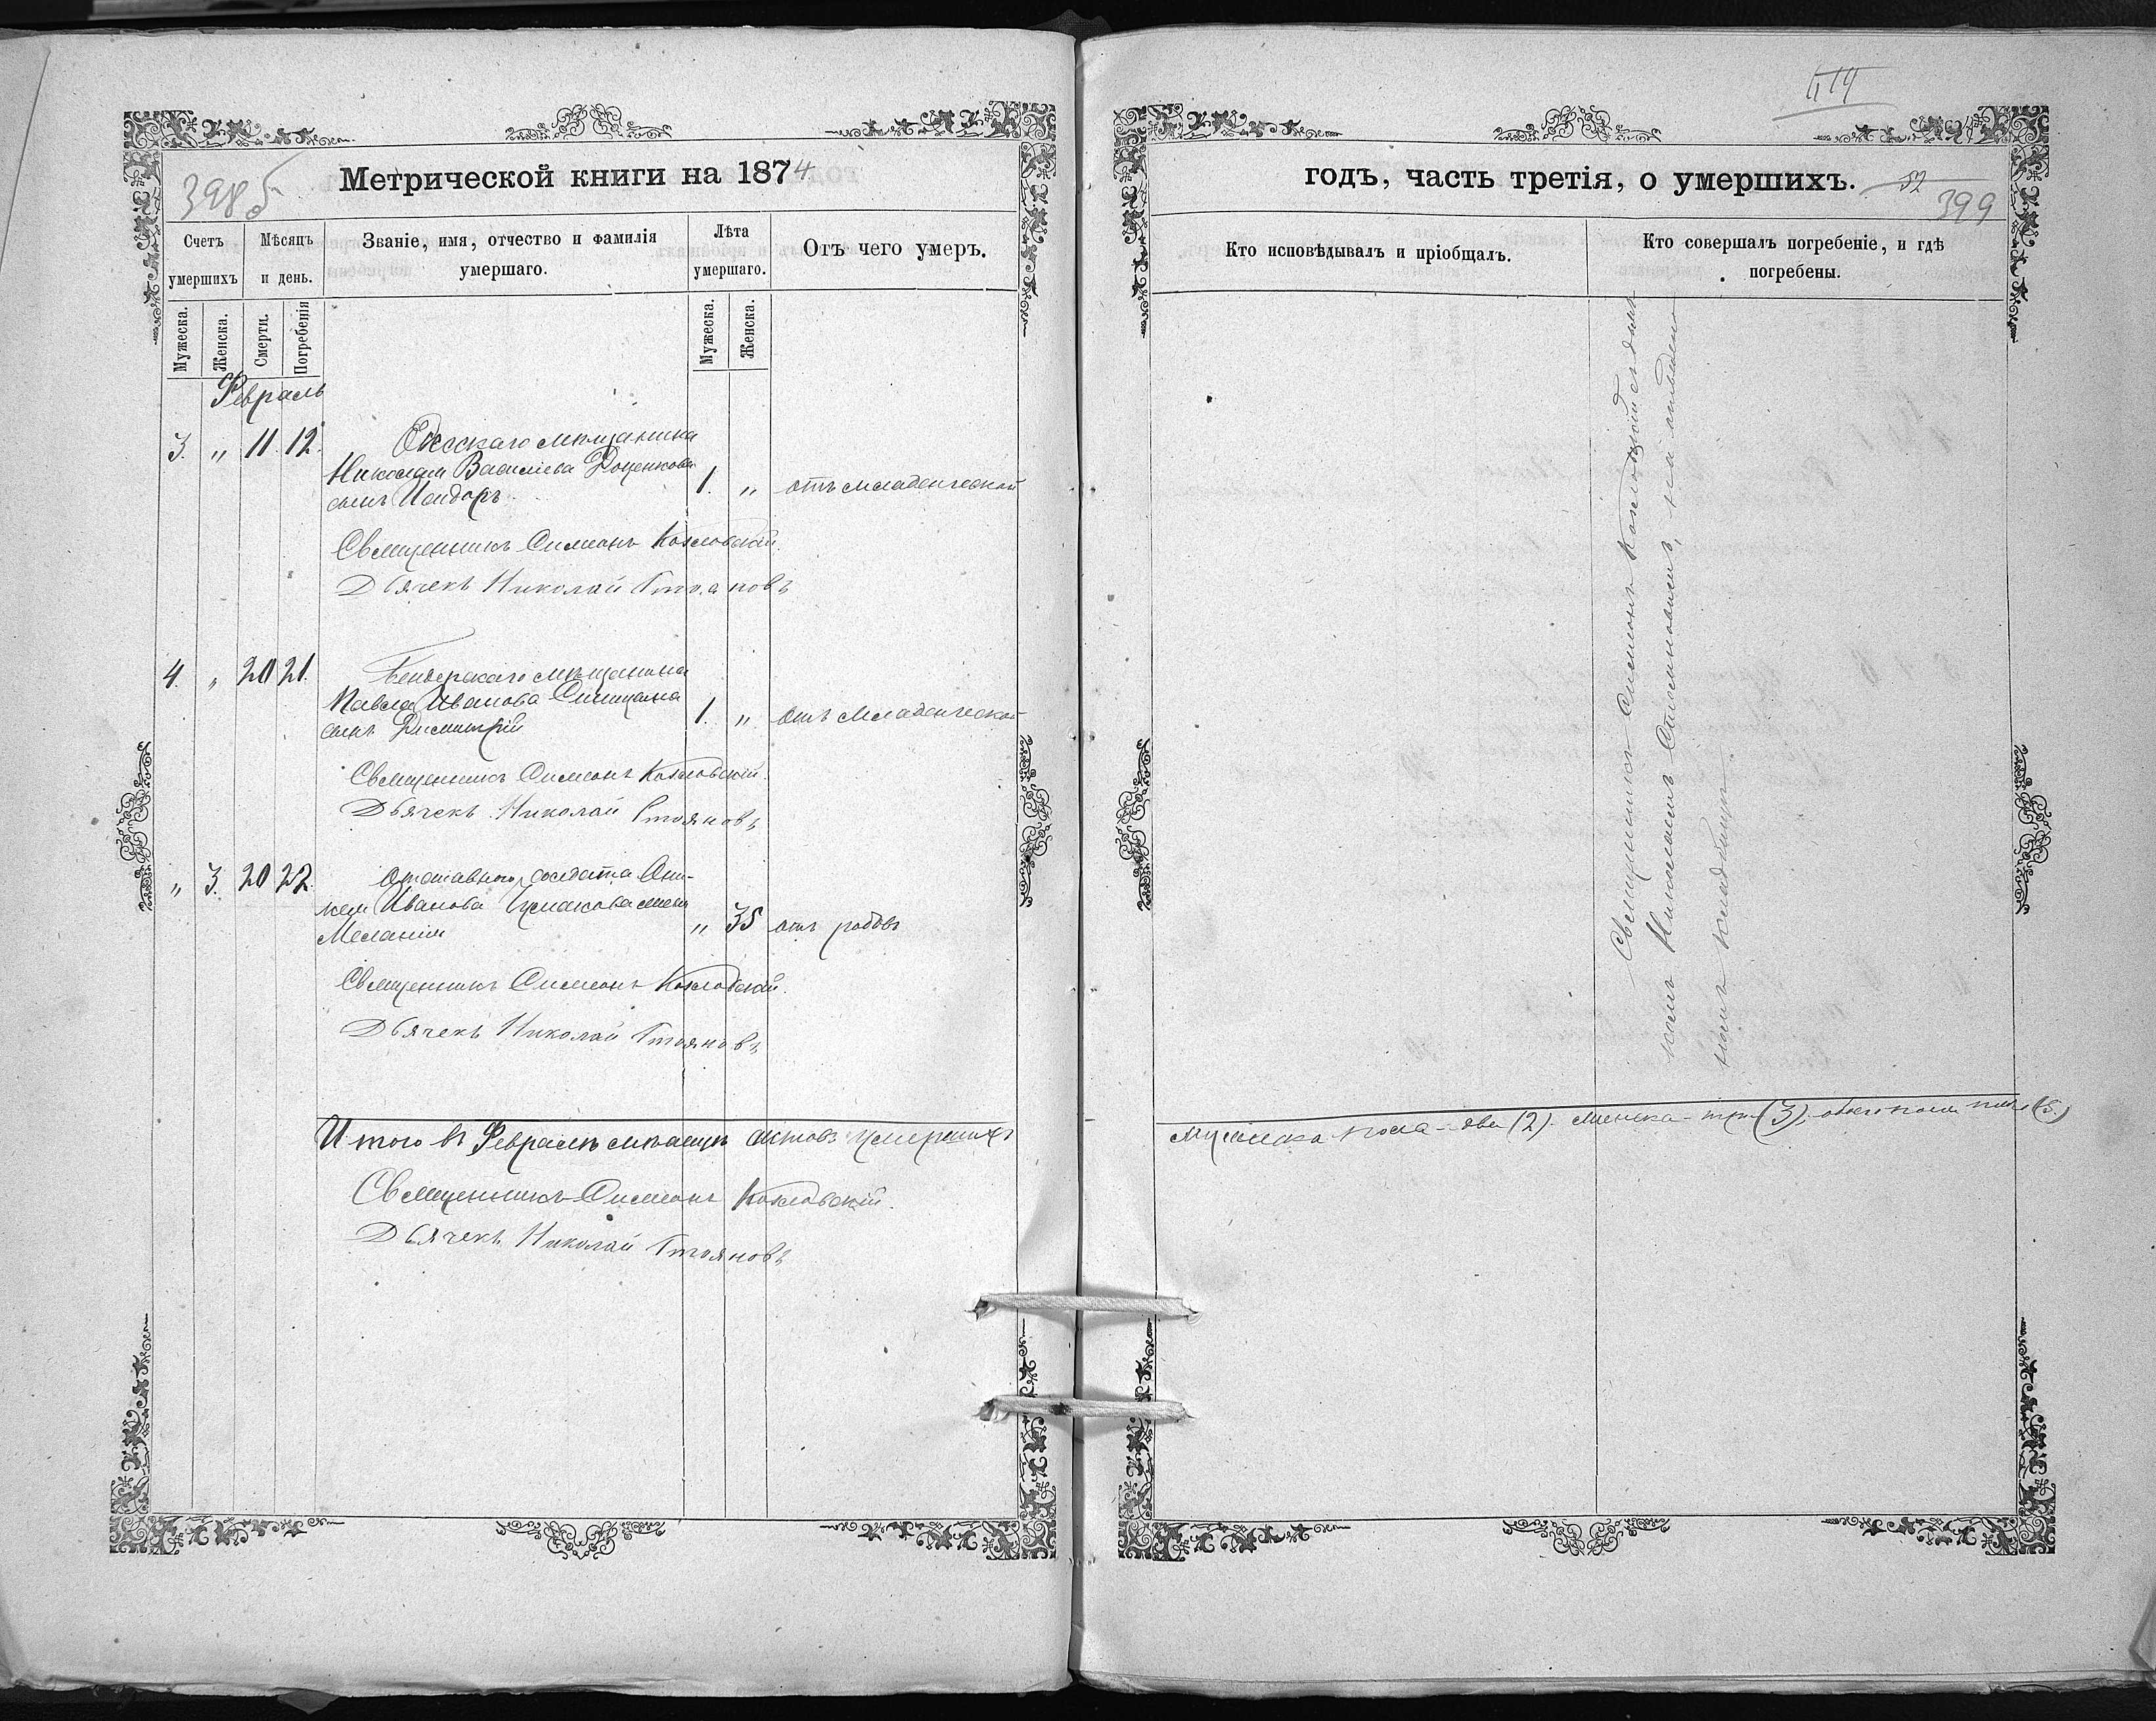 398 б
Метрической книги на 1874
Счетъ умершихъ
Мѣсяцъ и день.
Званіе, имя, отчество и фамилія умершаго.
Лѣта умершаго.
Отъ чего умеръ.
Мужеска.
Женска.
Смерти.
Погребенія
Мужеска.
Женска.
Февраль
3. " 11. 12. Одесскаго мѣщанина
Николая Василіева Доценкова
сынъ Исидоръ 1. " отъ младенческой
Священникъ Симеонъ Козловскій.
Дьячекъ Николай Стояновъ
4. " 20 21. Бендерскаго мѣщанина
Павла Иванова
сынъ Димитрій 1. " отъ младенческой
Священникъ Симеонъ Козловскій.
Дьячекъ Николай Стояновъ
" 3. 20 22. Отставного солдата
Иванова жена
Меланія " 35 отъ родовъ
Священникъ Симеонъ Козловскій.
Дьячекъ Николай Стояновъ
Итого въ Февралѣ мѣсяцѣ актовъ умершихъ
Священникъ Симеонъ Козловскій.
Дьячекъ Николай Стояновъ
годъ, часть третія, о умершихъ.
52
399
Кто исповѣдывалъ и пріобщалъ.
Кто совершалъ погребеніе, и гдѣ погребены.
Священникъ Симеонъ Козловскій съ дьяч-
комъ Николаемъ Стояновымъ, на отведен-
номъ кладбищѣ
мужеска пола - два (2). женска - три (3). обоего пола пять (5.)